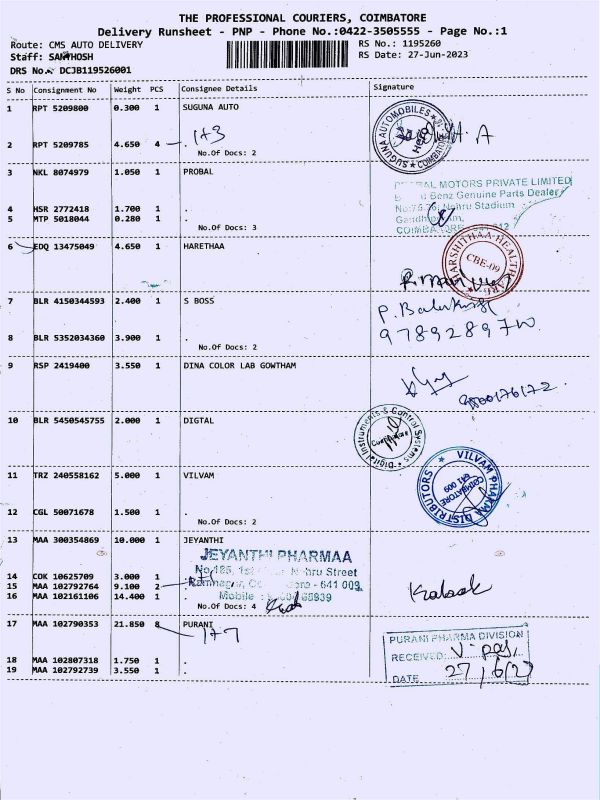 THE PROFESSIONAL COURIERS, COIMBATORE
Delivery Runsheet - PNP - Phone No.:0422-3505555 - Page No.:1
Route: CMS AUTO DELIVERY
RS No.: 1195260
Staff: SANTHOSH
RS Date: 27-Jun-2023
DRS No.: DCJB119526001
S No Consignment No Weight PCS Consignee Details Signature
1 RPT 5209800 0.300 1 SUGUNA AUTO
SUGUNA AUTOMOBILES
COIMBATORE
1+3
2 RPT 5209785 4.650 4 .
No.Of Docs: 2
3 NKL 8074979 1.050 1 PROBAL
MOTORS PRIVATE LIMITED
Benz Genuine Parts Dealer
4 HSR 2772418 1.700 1 .
Nehru Stadium
5 MTP 5018044 0.280 1 .
No.Of Docs: 3
6 EDQ 13475049 4.650 1 HARETHAA
CBE-09
7 BLR 4150344593 2.400 1 S BOSS
8 BLR 5352034360 3.900 1 .
No.Of Docs: 2
9 RSP 2419400 3.550 1 DINA COLOR LAB GOWTHAM
10 BLR 5450545755 2.000 1 DIGTAL
Digital Instruments & Control Systems
Coimbatore
11 TRZ 240558162 5.000 1 VILVAM
VILVAM PHARMA DISTRIBUTORS
COIMBATORE
641 009
12 CGL 50071678 1.500 1 .
No.Of Docs: 2
13 MAA 300354869 10.000 1 JEYANTHI
JEYANTHI PHARMAA
Nehru Street
14 COK 10625709 3.000 1 .
15 MAA 102792764 9.100 2 .
Ramnagar, - 641 009
16 MAA 102161106 14.400 1 .
Mobile :
No.Of Docs: 4
17 MAA 102790353 21.850 8 PURANI
1+7
PURANI PHARMA DIVISION
RECEIVED:
18 MAA 102807318 1.750 1 .
19 MAA 102792739 3.550 1 .
DATE 27/6/23